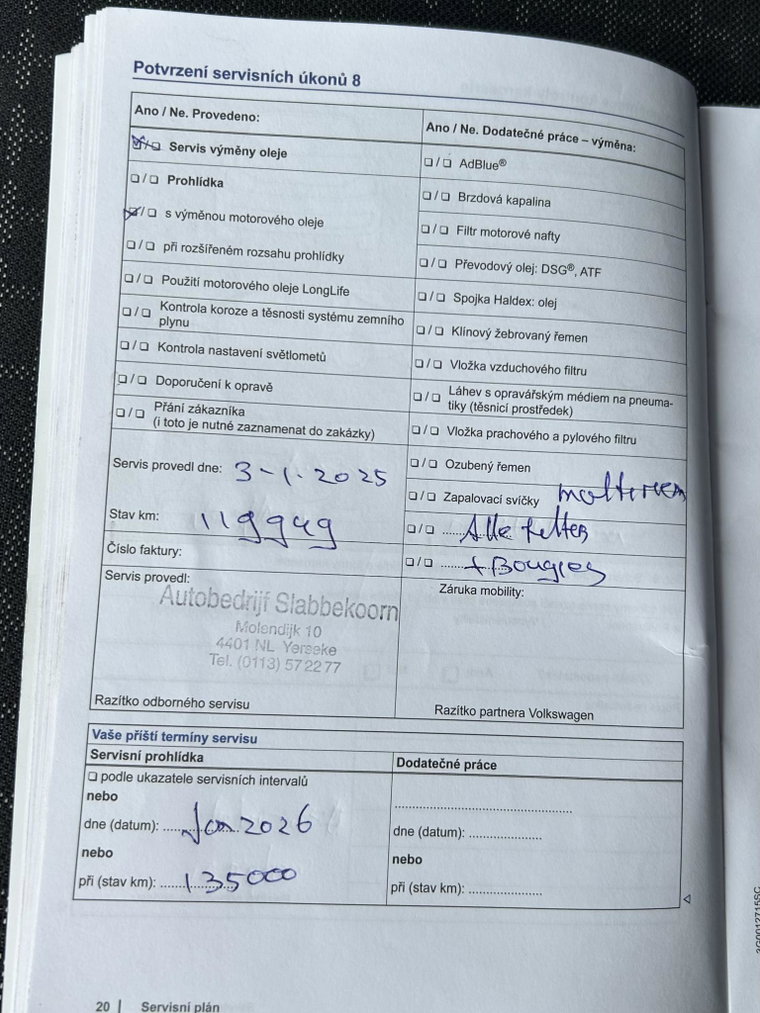 Potvrzení servisních úkonů 8
Ano / Ne. Provedeno:
Servis výměny oleje
Prohlídka
s výměnou motorového oleje
při rozšířeném rozsahu prohlídky
Použití motorového oleje LongLife
Kontrola koroze a těsnosti systému zemního
plynu
Kontrola nastavení světlometů
Doporučení k opravě
Přání zákazníka
(i toto je nutné zaznamenat do zakázky)
Servis provedl dne: 3-1-2025
Stav km: 119949
Číslo faktury:
Servis provedl:
Autobedrijf Slabbekoorn
Molendijk 10
4401 NL Yerseke
Tel. (0113) 57 22 77
Razítko odborného servisu
Ano / Ne. Dodatečné práce – výměna:
AdBlue®
Brzdová kapalina
Filtr motorové nafty
Převodový olej: DSG®, ATF
Spojka Haldex: olej
Klínový žebrovaný řemen
Vložka vzduchového filtru
Láhev s opravářským médiem na pneuma-
tiky (těsnicí prostředek)
Vložka prachového a pylového filtru
Ozubený řemen
Zapalovací svíčky
Alle filters
+ Bougies
Záruka mobility:
Razítko partnera Volkswagen
Vaše příští termíny servisu
Servisní prohlídka
podle ukazatele servisních intervalů
nebo
dne (datum): Jan 2026
nebo
při (stav km): 135000
Dodatečné práce
dne (datum):
nebo
při (stav km):
20 | Servisní plán
3G0012715SC